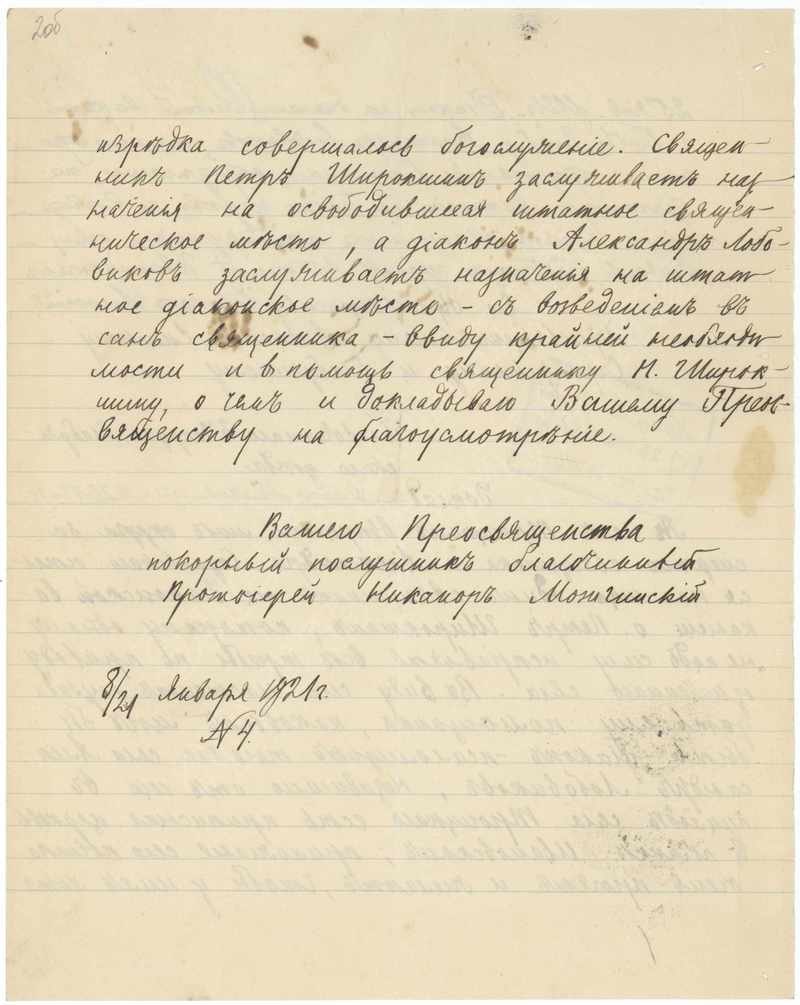 20б
изрѣдка совершалось богослуженіе. Священ-
никъ Петръ Широкшинъ заслуживаетъ наз-
наченія на освободившееся штатное священ-
ническое мѣсто, а діаконъ Александръ Лобо-
виковъ заслуживаетъ назначенія на штат-
ное діаконское мѣсто – съ возведеніемъ въ
санъ священника – ввиду крайней необходи-
мости и въ помощь священнику П. Широк-
шину, о чемъ и докладываю Вашему Преос-
вященству на благоусмотрѣніе.
Вашего Преосвященства
покорный послушникъ благочинный
Протоіерей Никаноръ Можгинскій
8/21 января 1921 г.
№ 4.